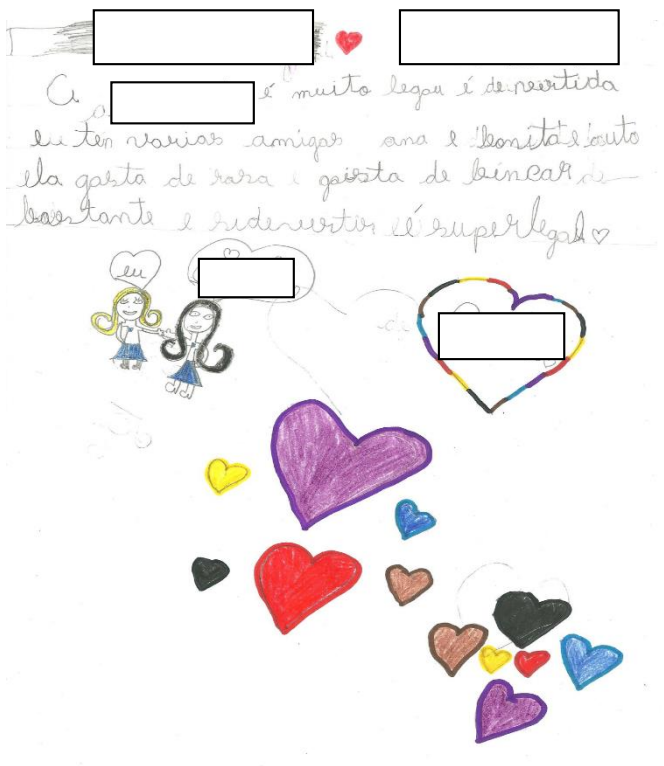 A
é muito legau é denvertida
eu ten varias amigas ana e bonita e outo
ela gosta de rosa e goista de bincar de
baistante e sidenvertir é superlegal ♡
eu
de